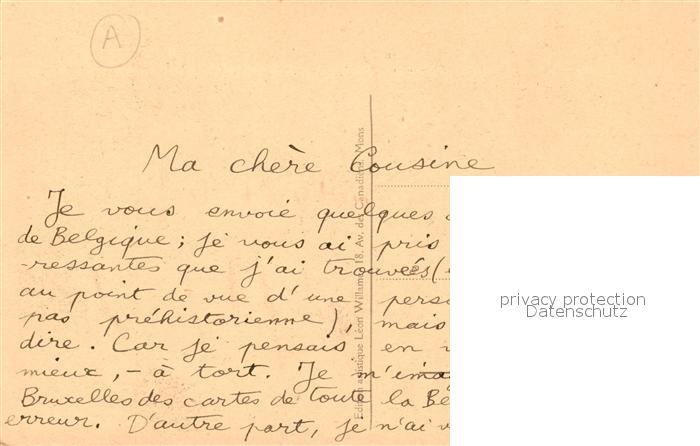 A
Ma chère Cousine
Je vous envoie quelques
de Belgique ; je vous ai pris
-ressantes que j'ai trouvées (
au point de vue d'une pers
pas préhistorienne), mais
dire. Car je pensais en
mieux, - à tort. Je m'
Bruxelles des cartes de toute la Be
erreur. D'autre part, je n'ai
Edition artistique Léon Willame, 18, Av. des Canadiens, Mons
privacy protection
Datenschutz